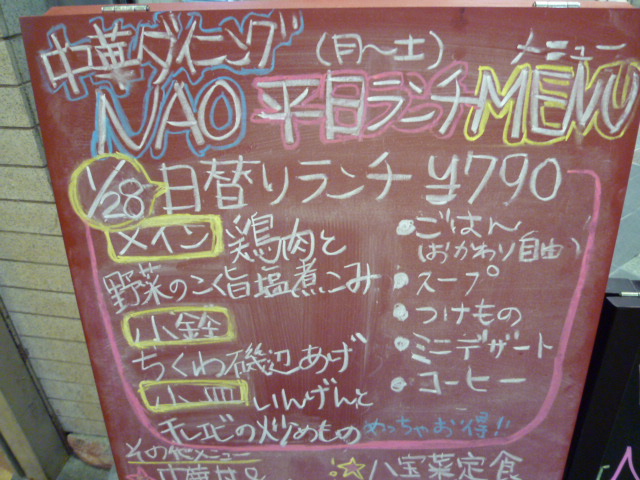 中華ダイニング (月～土) メニュー
NAO 平日ランチMENU
1/28 日替りランチ ¥790
メイン 鶏肉と
野菜のこく旨塩煮こみ
小鉢
ちくわ磯辺あげ
小皿 いんげんと
干しエビの炒めもの
・ごはん
(おかわり自由)
・スープ
・つけもの
・ミニデザート
・コーヒー
めっちゃお得!!
その他メニュー
☆八宝菜定食